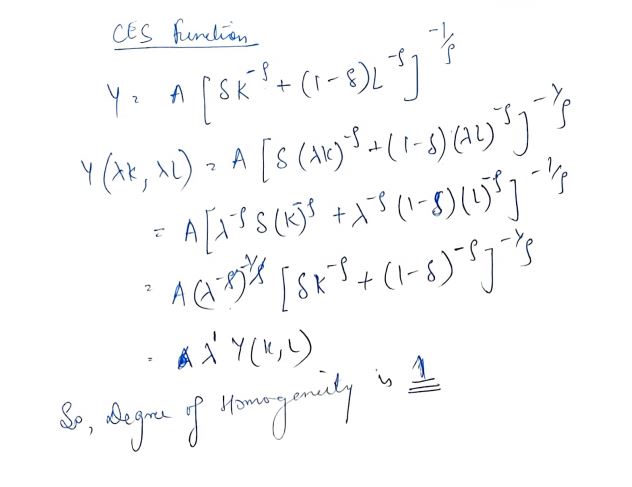 CES Function
Y = A [δK^-ρ + (1-δ)L^-ρ]^-1/ρ
Y(λK, λL) = A [δ(λK)^-ρ + (1-δ)(λL)^-ρ]^-1/ρ
= A[λ^-ρ δ(K)^-ρ + λ^-ρ (1-δ)(L)^-ρ]^-1/ρ
= A(λ^-ρ)^-1/ρ [δK^-ρ + (1-δ)^-ρ]^-1/ρ
= λ^1 Y(K, L)
So, Degree of Homogeneity is 1